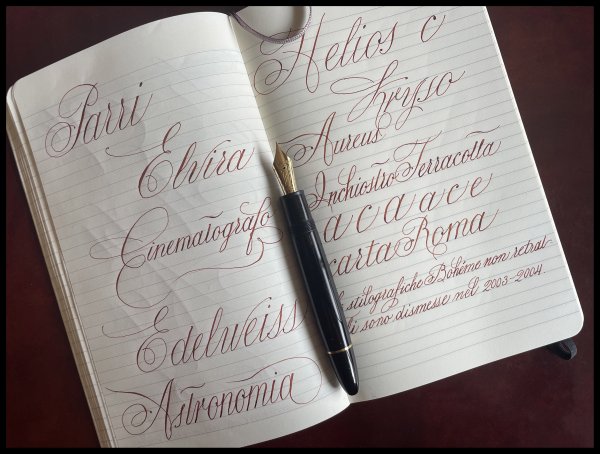 Parri
Elvira
Cinematografo
Edelweiss
Astronomia
Helios c
Kryso
Aureus
Inchiostro Terracotta
a c a a c e
carta Roma
stilografiche Bohème non retrat-
li sono dismesse nel 2003-2004.